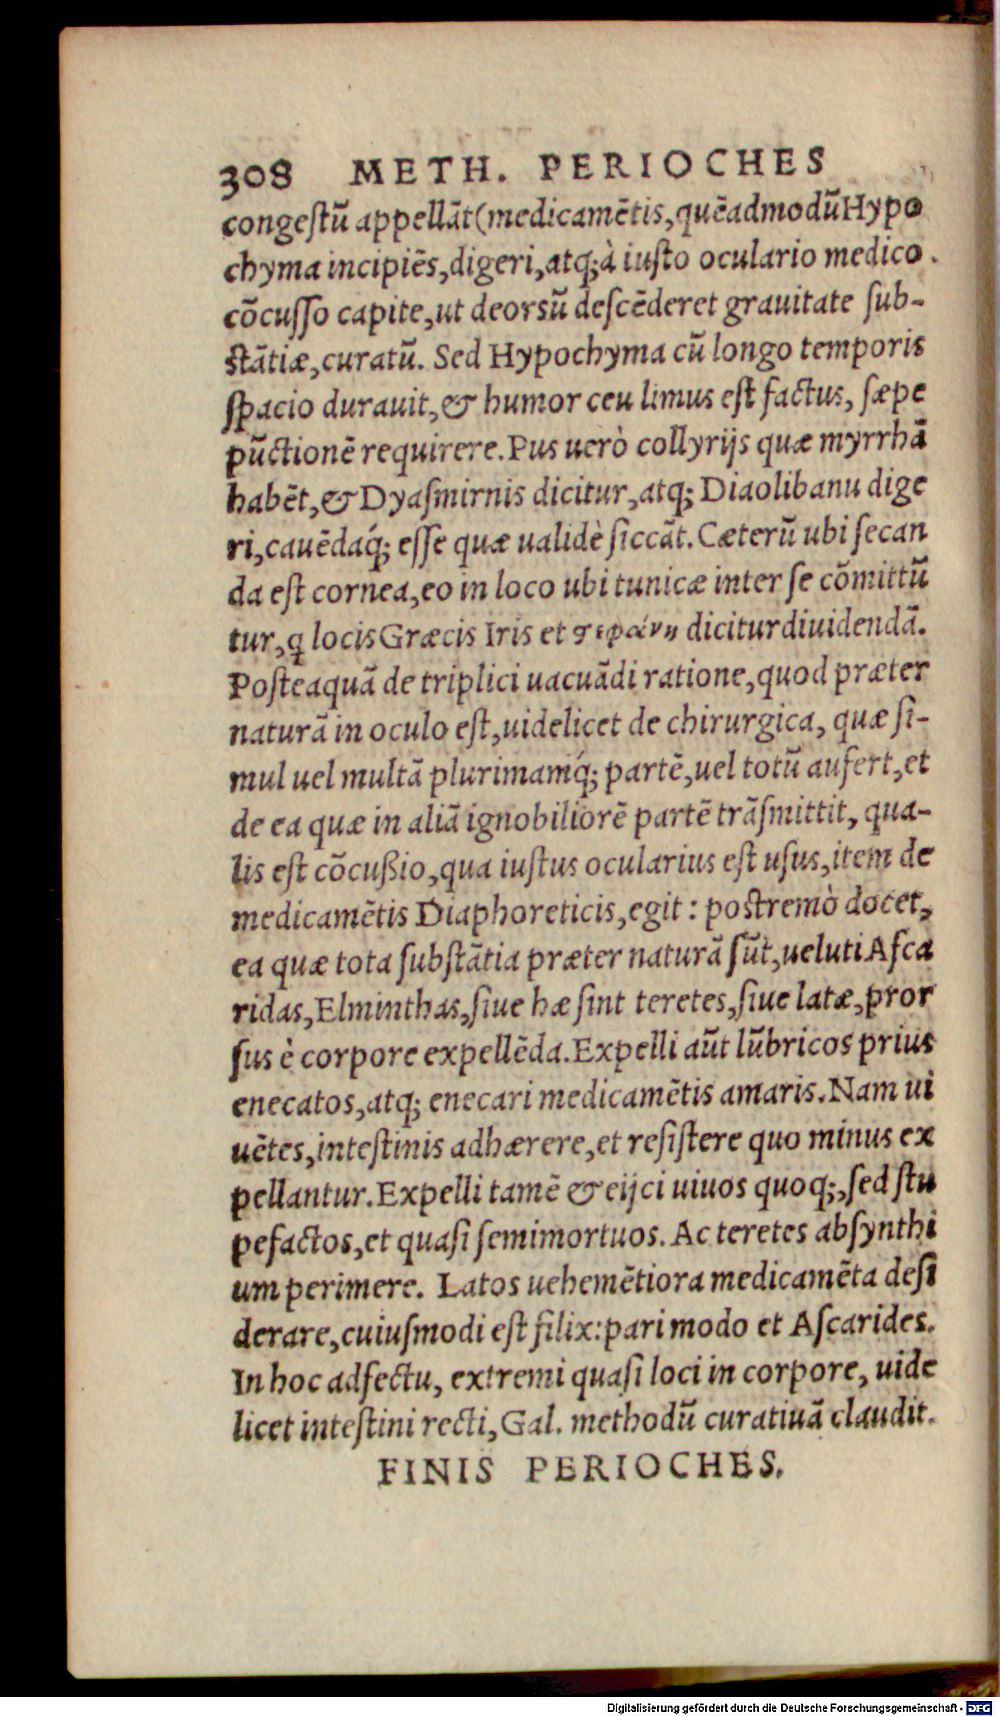 308 METH. PERIOCHES
congeſtũ appellãt (medicamẽtis, quẽadmodũ Hypo
chyma incipiẽs, digeri, atq; à iuſto oculario medico
cõcuſſo capite, ut deorsũ deſcẽderet grauitate ſub-
ſtãtiæ, curatũ. Sed Hypochyma cũ longo temporis
ſpacio durauit, & humor ceu limus eſt factus, ſæpe
pũctionẽ requirere. Pus uerò collyrijs quæ myrrhã
habẽt, & Dyaſmirnis dicitur, atq; Diaolibanu dige
ri, cauẽdaq́; eſſe quæ ualidè ſiccãt. Cæterũ ubi ſecan
da eſt cornea, eo in loco ubi tunicæ inter ſe cõmittũ
tur, ꝗ locis Græcis Iris et ςεφάνη dicitur diuidendã.
Poſteaquã de triplici uacuãdi ratione, quod præter
naturã in oculo eſt, uidelicet de chirurgica, quæ ſi-
mul uel multã plurimamq́; partẽ, uel totũ aufert, et
de ea quæ in aliã ignobiliorẽ partẽ trãſmittit, qua-
lis eſt cõcußio, qua iuſtus ocularius eſt uſus, item de
medicamẽtis Diaphoreticis, egit: poſtremò docet,
ea quæ tota ſubſtãtia præter naturã ſũt, ueluti Aſca
ridas, Elminthas, ſiue hæ ſint teretes, ſiue latæ, pror
ſus è corpore expellẽda. Expelli aũt lũbricos prius
enecatos, atq; enecari medicamẽtis amaris. Nam ui
uẽtes, inteſtinis adhærere, et reſiſtere quo minus ex
pellantur. Expelli tamẽ & eijci uiuos quoq;, ſed ſtu
pefactos, et quaſi ſemimortuos. Ac teretes abſynthi
um perimere. Latos uehemẽtiora medicamẽta deſi
derare, cuiuſmodi eſt filix: pari modo et Aſcarides.
In hoc adfectu, extremi quaſi loci in corpore, uide
licet inteſtini recti, Gal. methodũ curatiuã claudit.
FINIS PERIOCHES.
Digitalisierung gefördert durch die Deutsche Forschungsgemeinschaft - DFG